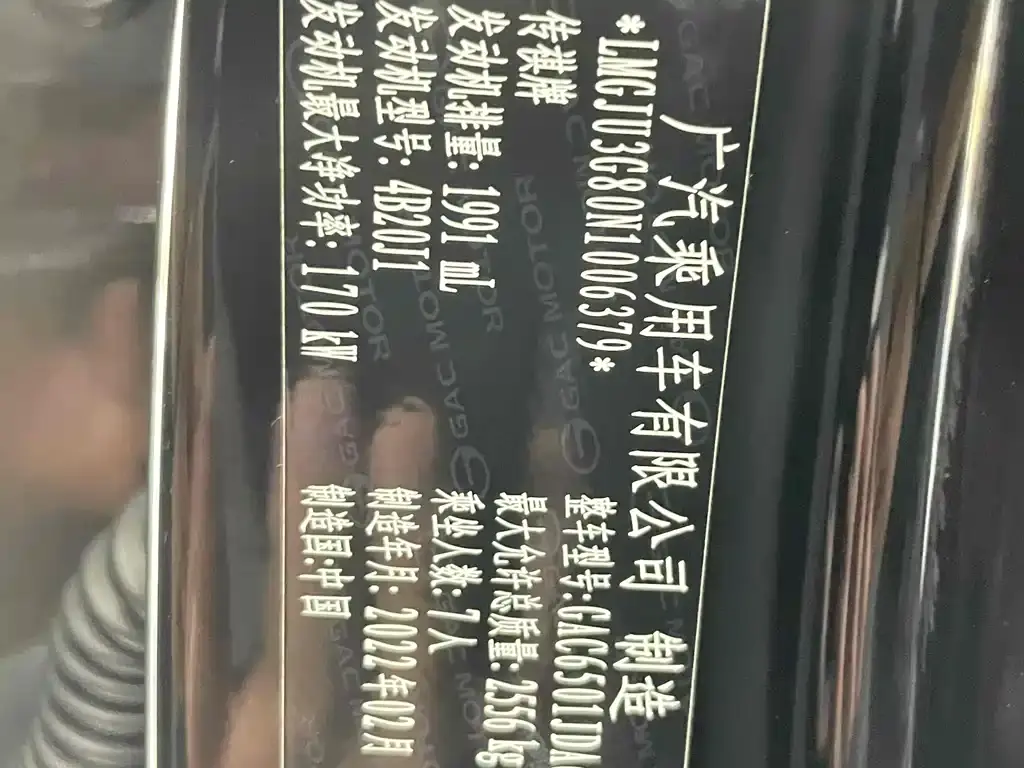 广汽乘用车有限公司 制造
*LMGJU3G80N1006379*
传祺牌 整车型号:GAC6501JDA
发动机排量: 1991 mL 最大允许总质量: 2556 kg
发动机型号: 4B20J1 乘坐人数: 7人
发动机最大净功率: 170 kW 制造年月: 2022年02月
制造国:中国
GAC MOTOR
GAC MOTOR